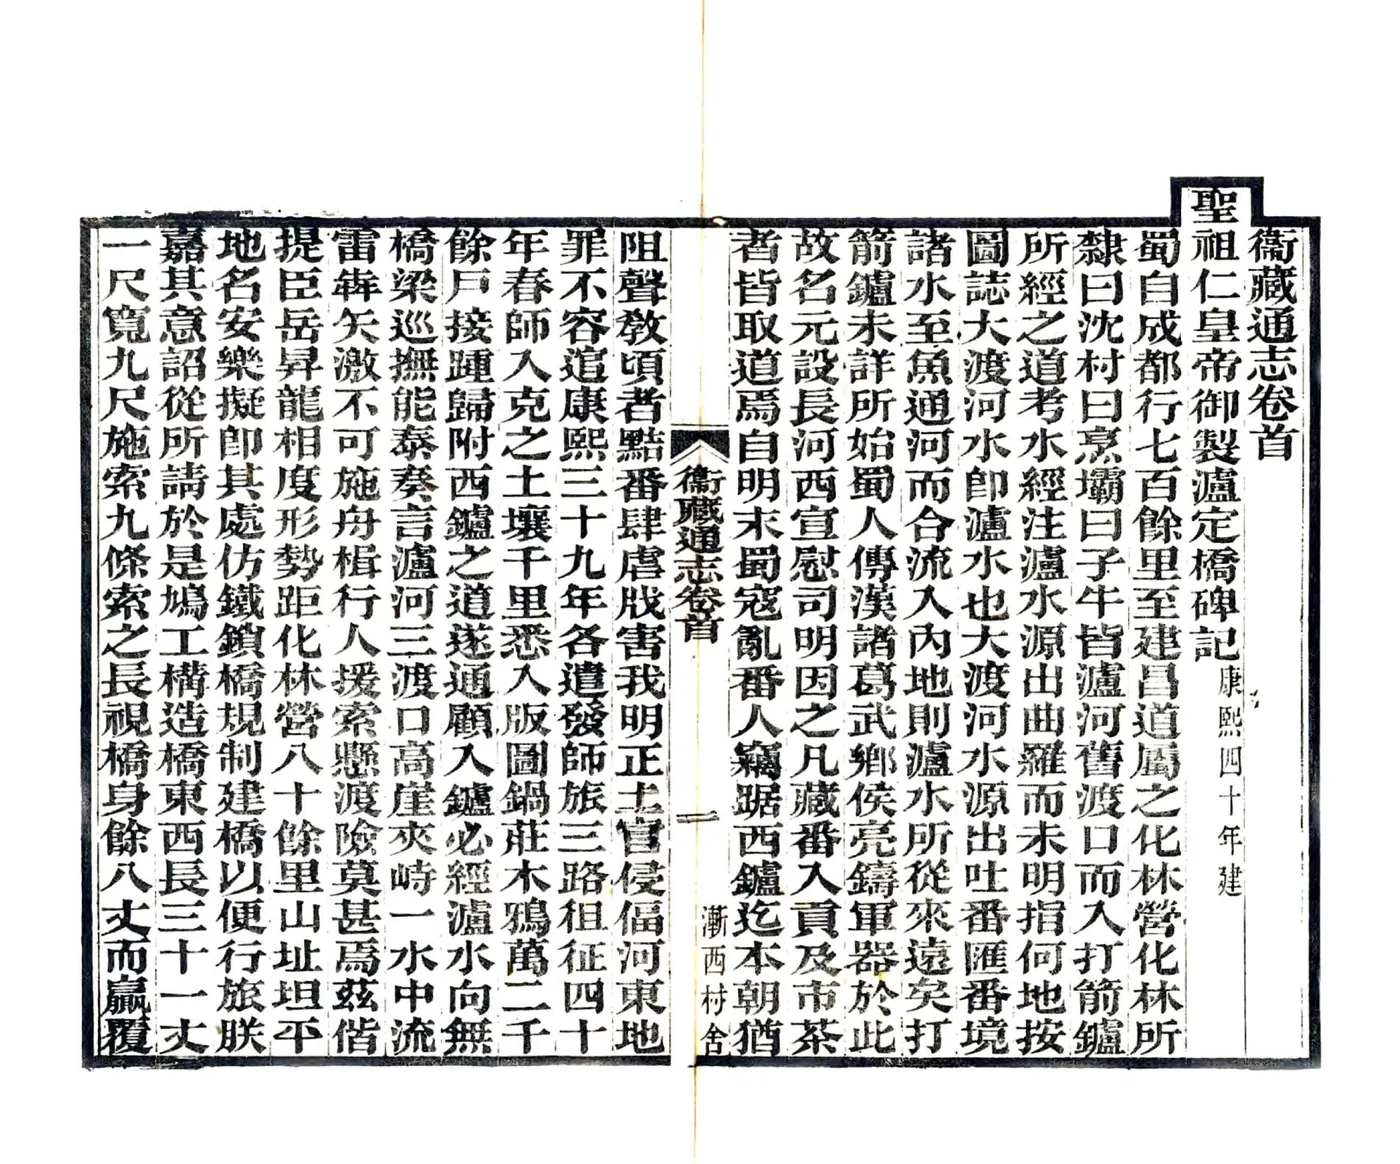 衞藏通志卷首
聖祖仁皇帝御製瀘定橋碑記康熙四十年建
蜀自成都行七百餘里至建昌道屬之化林營化林所
隸曰沈村曰烹壩曰子牛皆瀘河舊渡口而入打箭鑪
所經之道考水經注瀘水源出曲羅而未明指何地按
圖誌大渡河水卽瀘水也大渡河水源出吐番匯番境
諸水至魚通河而合流入內地則瀘水所從來遠矣打
箭鑪未詳所始蜀人傳漢諸葛武鄉侯亮鑄軍器於此
故名元設長河西宣慰司明因之凡藏番入貢及市茶
者皆取道焉自明末蜀寇亂番人竊踞西鑪迄本朝猶
衞藏通志卷首
一
漸西村舍
阻聲敎頃者黠番肆虐戕害我明正土官侵偪河東地
罪不容逭康熙三十九年各遣發師旅三路徂征四十
年春師入克之土壤千里悉入版圖鍋莊木鴉萬二千
餘戶接踵歸附西鑪之道遂通顧入鑪必經瀘水向無
橋梁巡撫能泰奏言瀘河三渡口高崖夾峙一水中流
雷犇矢激不可施舟楫行人援索懸渡險莫甚焉茲偕
提臣岳昇龍相度形勢距化林營八十餘里山址坦平
地名安樂擬卽其處仿鐵鎖橋規制建橋以便行旅朕
嘉其意詔從所請於是鳩工構造橋東西長三十一丈
一尺寬九尺施索九條索之長視橋身餘八丈而贏覆